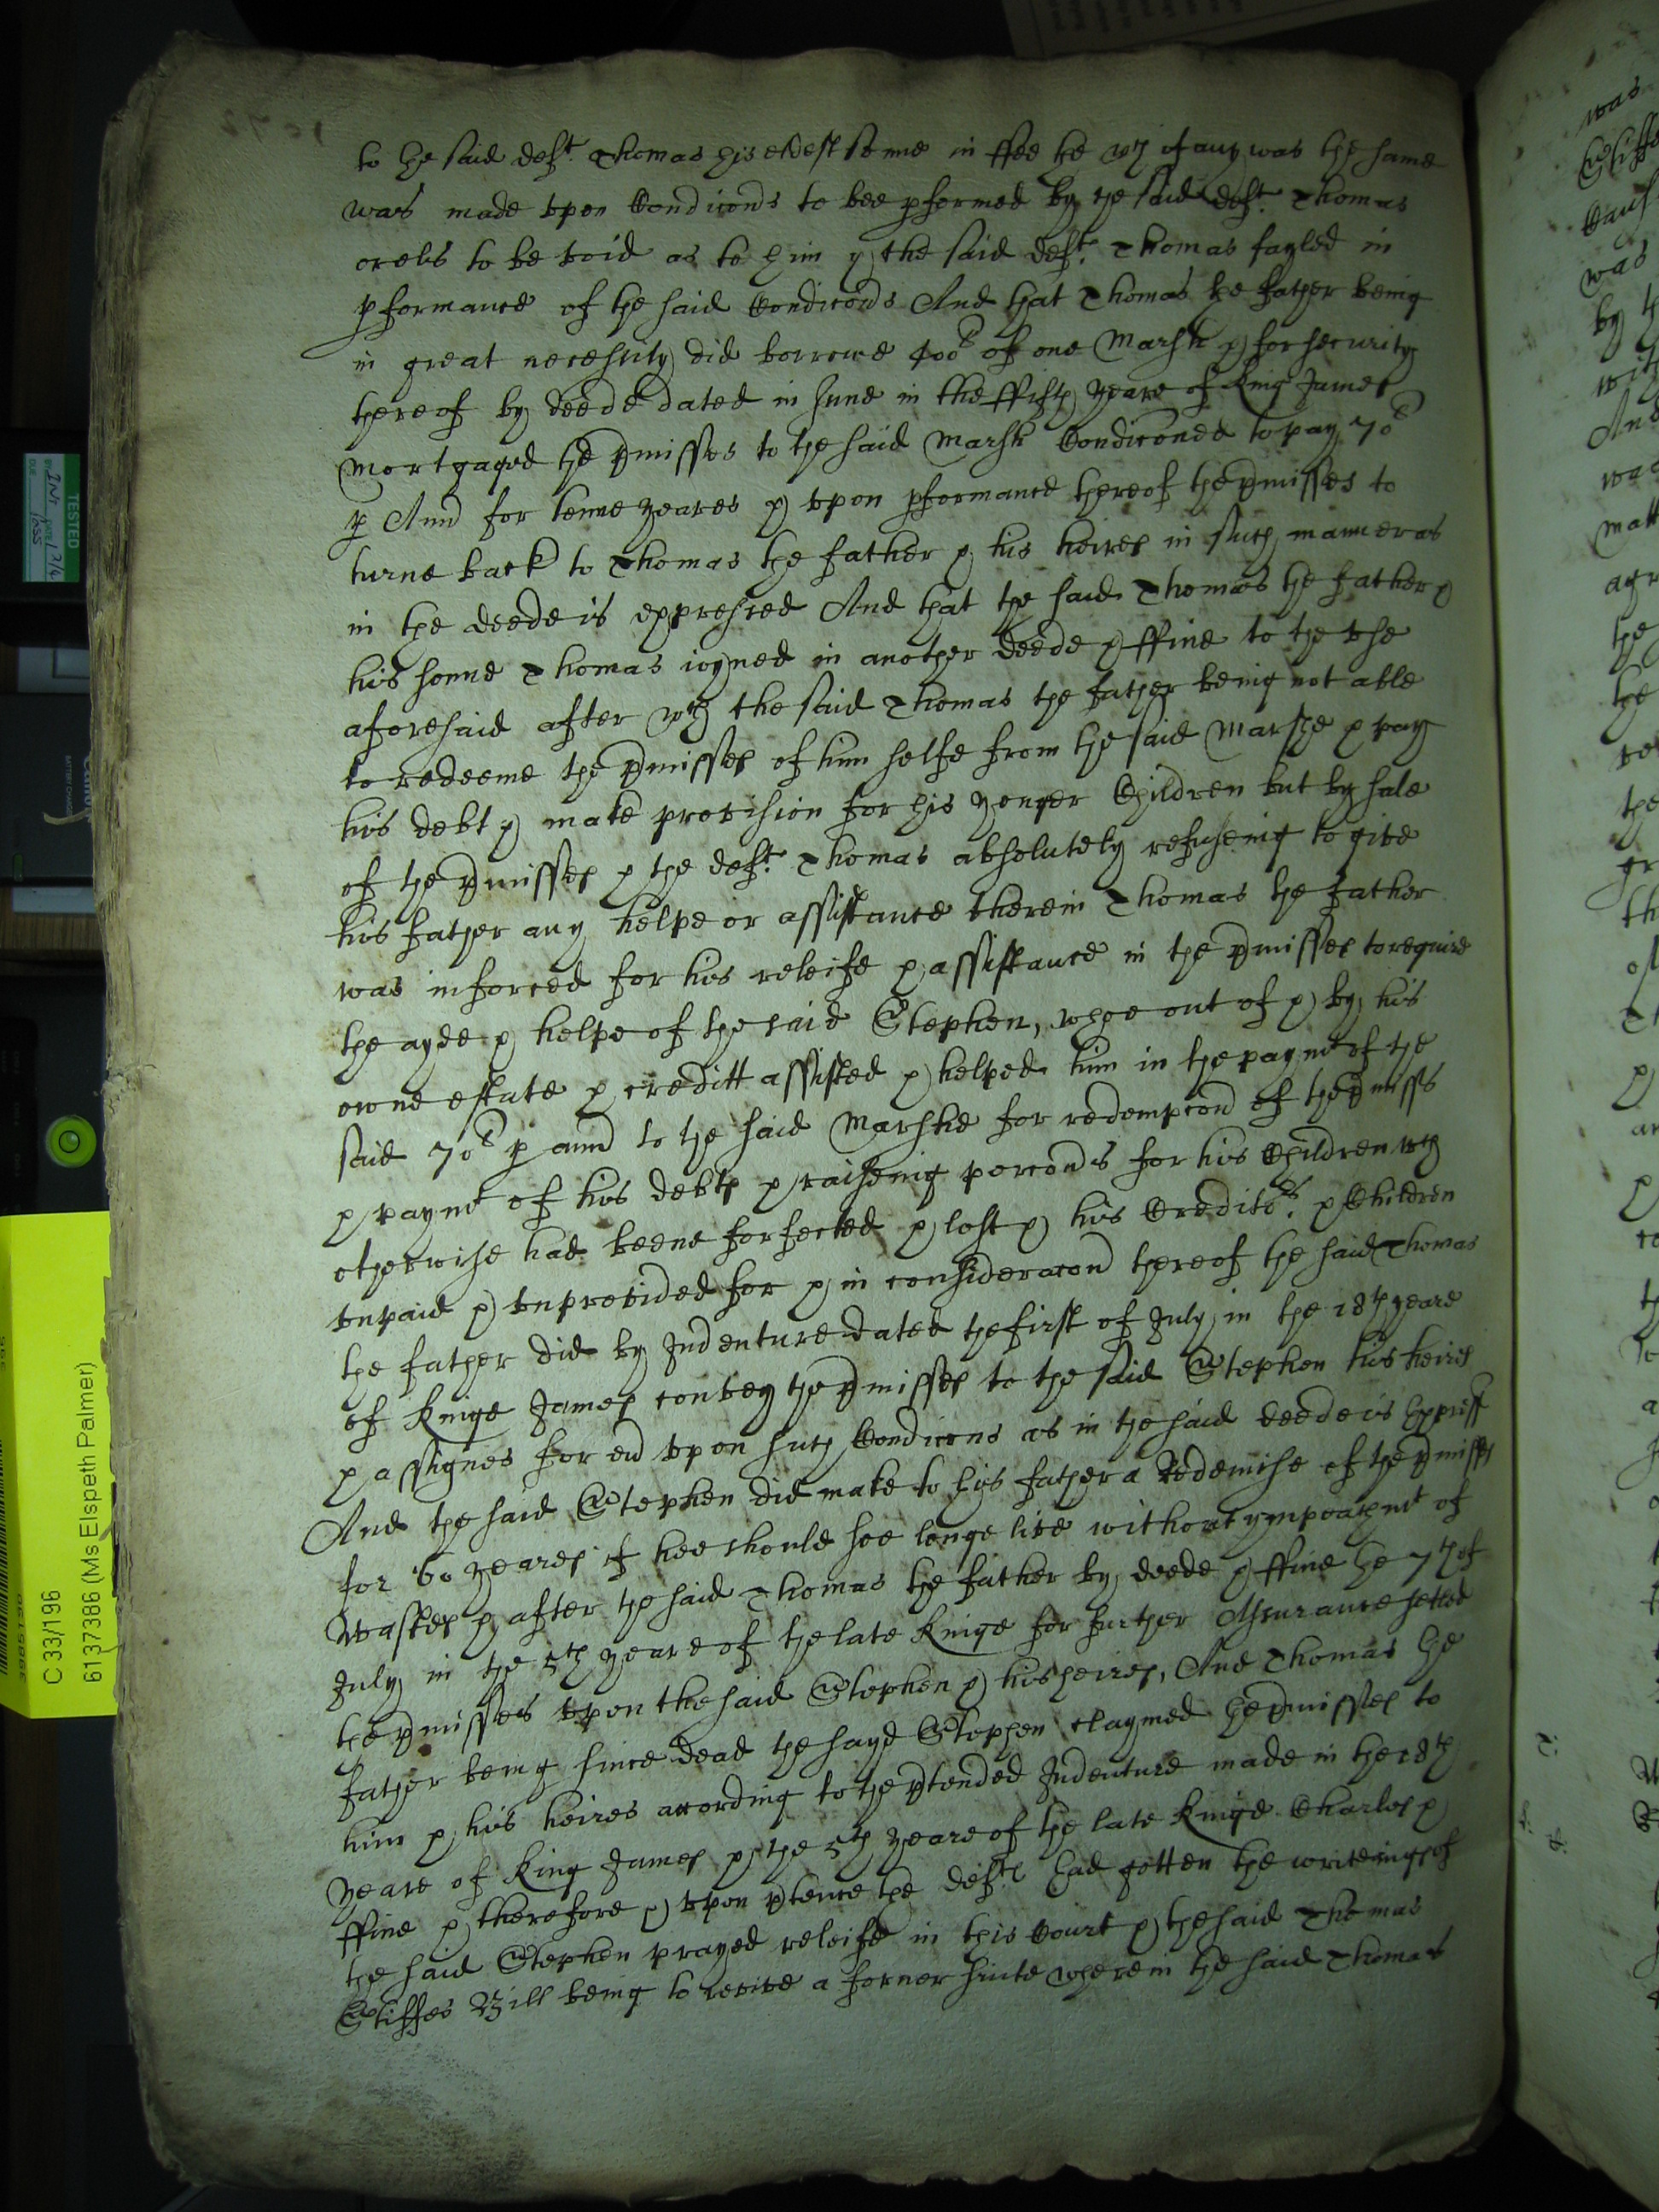 to the said deft. Thomas his eldest sonne in ffee the wch if any was the same
was made vpon Condicons to bee pformed by the said deft. Thomas
orels to be void as to him & the said deft. Thomas fayled in
pformance of the said Condicons And that Thomas the father being
in great necessity did borrowe 400l of one Marsh & for security
thereof by deede dated in June in the ffifth yeare of King James
Mortgaged the pmisses to the said Marsh Condiconed to pay 70l
p Ann for tenne yeares & vpon pformance thereof the pmisses to
turne back to Thomas the father & his heires in such manner as
in the deede is expressed And that the said Thomas the father &
his sonne Thomas ioyned in another deede & ffine to the vse
aforesaid after wch the said Thomas the father being not able
to redeeme the pmisses of him selfe from the said Marshe & pay
his debt & make provision for his yonger Children but by sale
of the pmisses & the deft. Thomas absolutely refuseing to give
his father any helpe or assistance therein Thomas the father
was inforced for his releife & assistance in the pmisses to require
the ayde & helpe of the said Stephen, whoe out of & by his
owne estate & creditt assisted & helped him in the paymt of the
said 70l p ann to the said Marshe for redempcon of the pmisss
& paymt of his debts & raiseing porcons for his Children wch
otherwise had beene forfected & lost & his Creditors. & Children
vnpaid & vnprovided for & in consideracon thereof the said Thomas
the father did by Indenture dated the first of July in the 18th yeare
of Kinge James convey the pmisses to the said Stephen his heires
& assignes for ev vpon such Condicons as in the said deede is Exprest
And the said Stephen did make to his father a Redemise of the pmisses
for 60 yeares if hee should soe longe live without ympeachmt of
Wastes & after the said Thomas the father by deede & ffine the 7th of
July in the 5th yeare of the late Kinge for further Assurance setled
the pmisses vpon the said Stephen & his heires, And Thomas the
father being since dead the sayd Stephen claymed the pmisses to
him & his heires according to the ptended Indenture made in the 18th
yeare of King James & the 5th yeare of the late Kinge Charles &
ffine & therefore & vpon ptence the defts had gotten the writeings of
the said Stephen prayed releife in this Court & the said Thomas
Stiffes Bill being to revive a former suite wherein the said Thomas
TESTED
C 33/196
6137386 (Ms Elspeth Palmer)